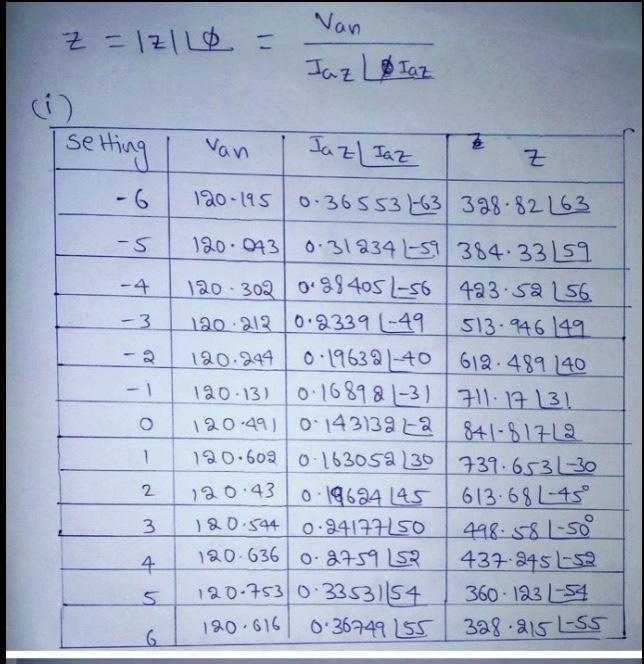 Z = |Z| ∠φ = Van / Iaz ∠φIaz
(i)
Setting | Van | Iaz∠Iaz | Z
-6 | 120.195 | 0.36553∠-63 | 328.82∠63
-5 | 120.043 | 0.31234∠-59 | 384.33∠59
-4 | 120.302 | 0.28405∠-56 | 423.52∠56
-3 | 120.212 | 0.2339∠-49 | 513.946∠49
-2 | 120.244 | 0.19632∠-40 | 612.489∠40
-1 | 120.131 | 0.16892∠-31 | 711.17∠31
0 | 120.491 | 0.143132∠-2 | 841.817∠2
1 | 120.602 | 0.163052∠30 | 739.653∠-30
2 | 120.43 | 0.19624∠45 | 613.68∠-45°
3 | 120.544 | 0.24177∠50 | 498.58∠-50°
4 | 120.636 | 0.2759∠52 | 437.245∠-52
5 | 120.753 | 0.33531∠54 | 360.123∠-54
6 | 120.616 | 0.36749∠55 | 328.215∠-55